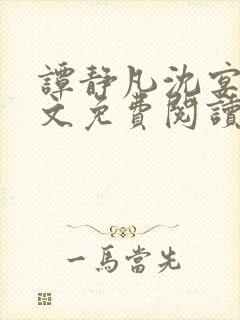 譚靜凡沈宴
文免費閱讀
一馬當先